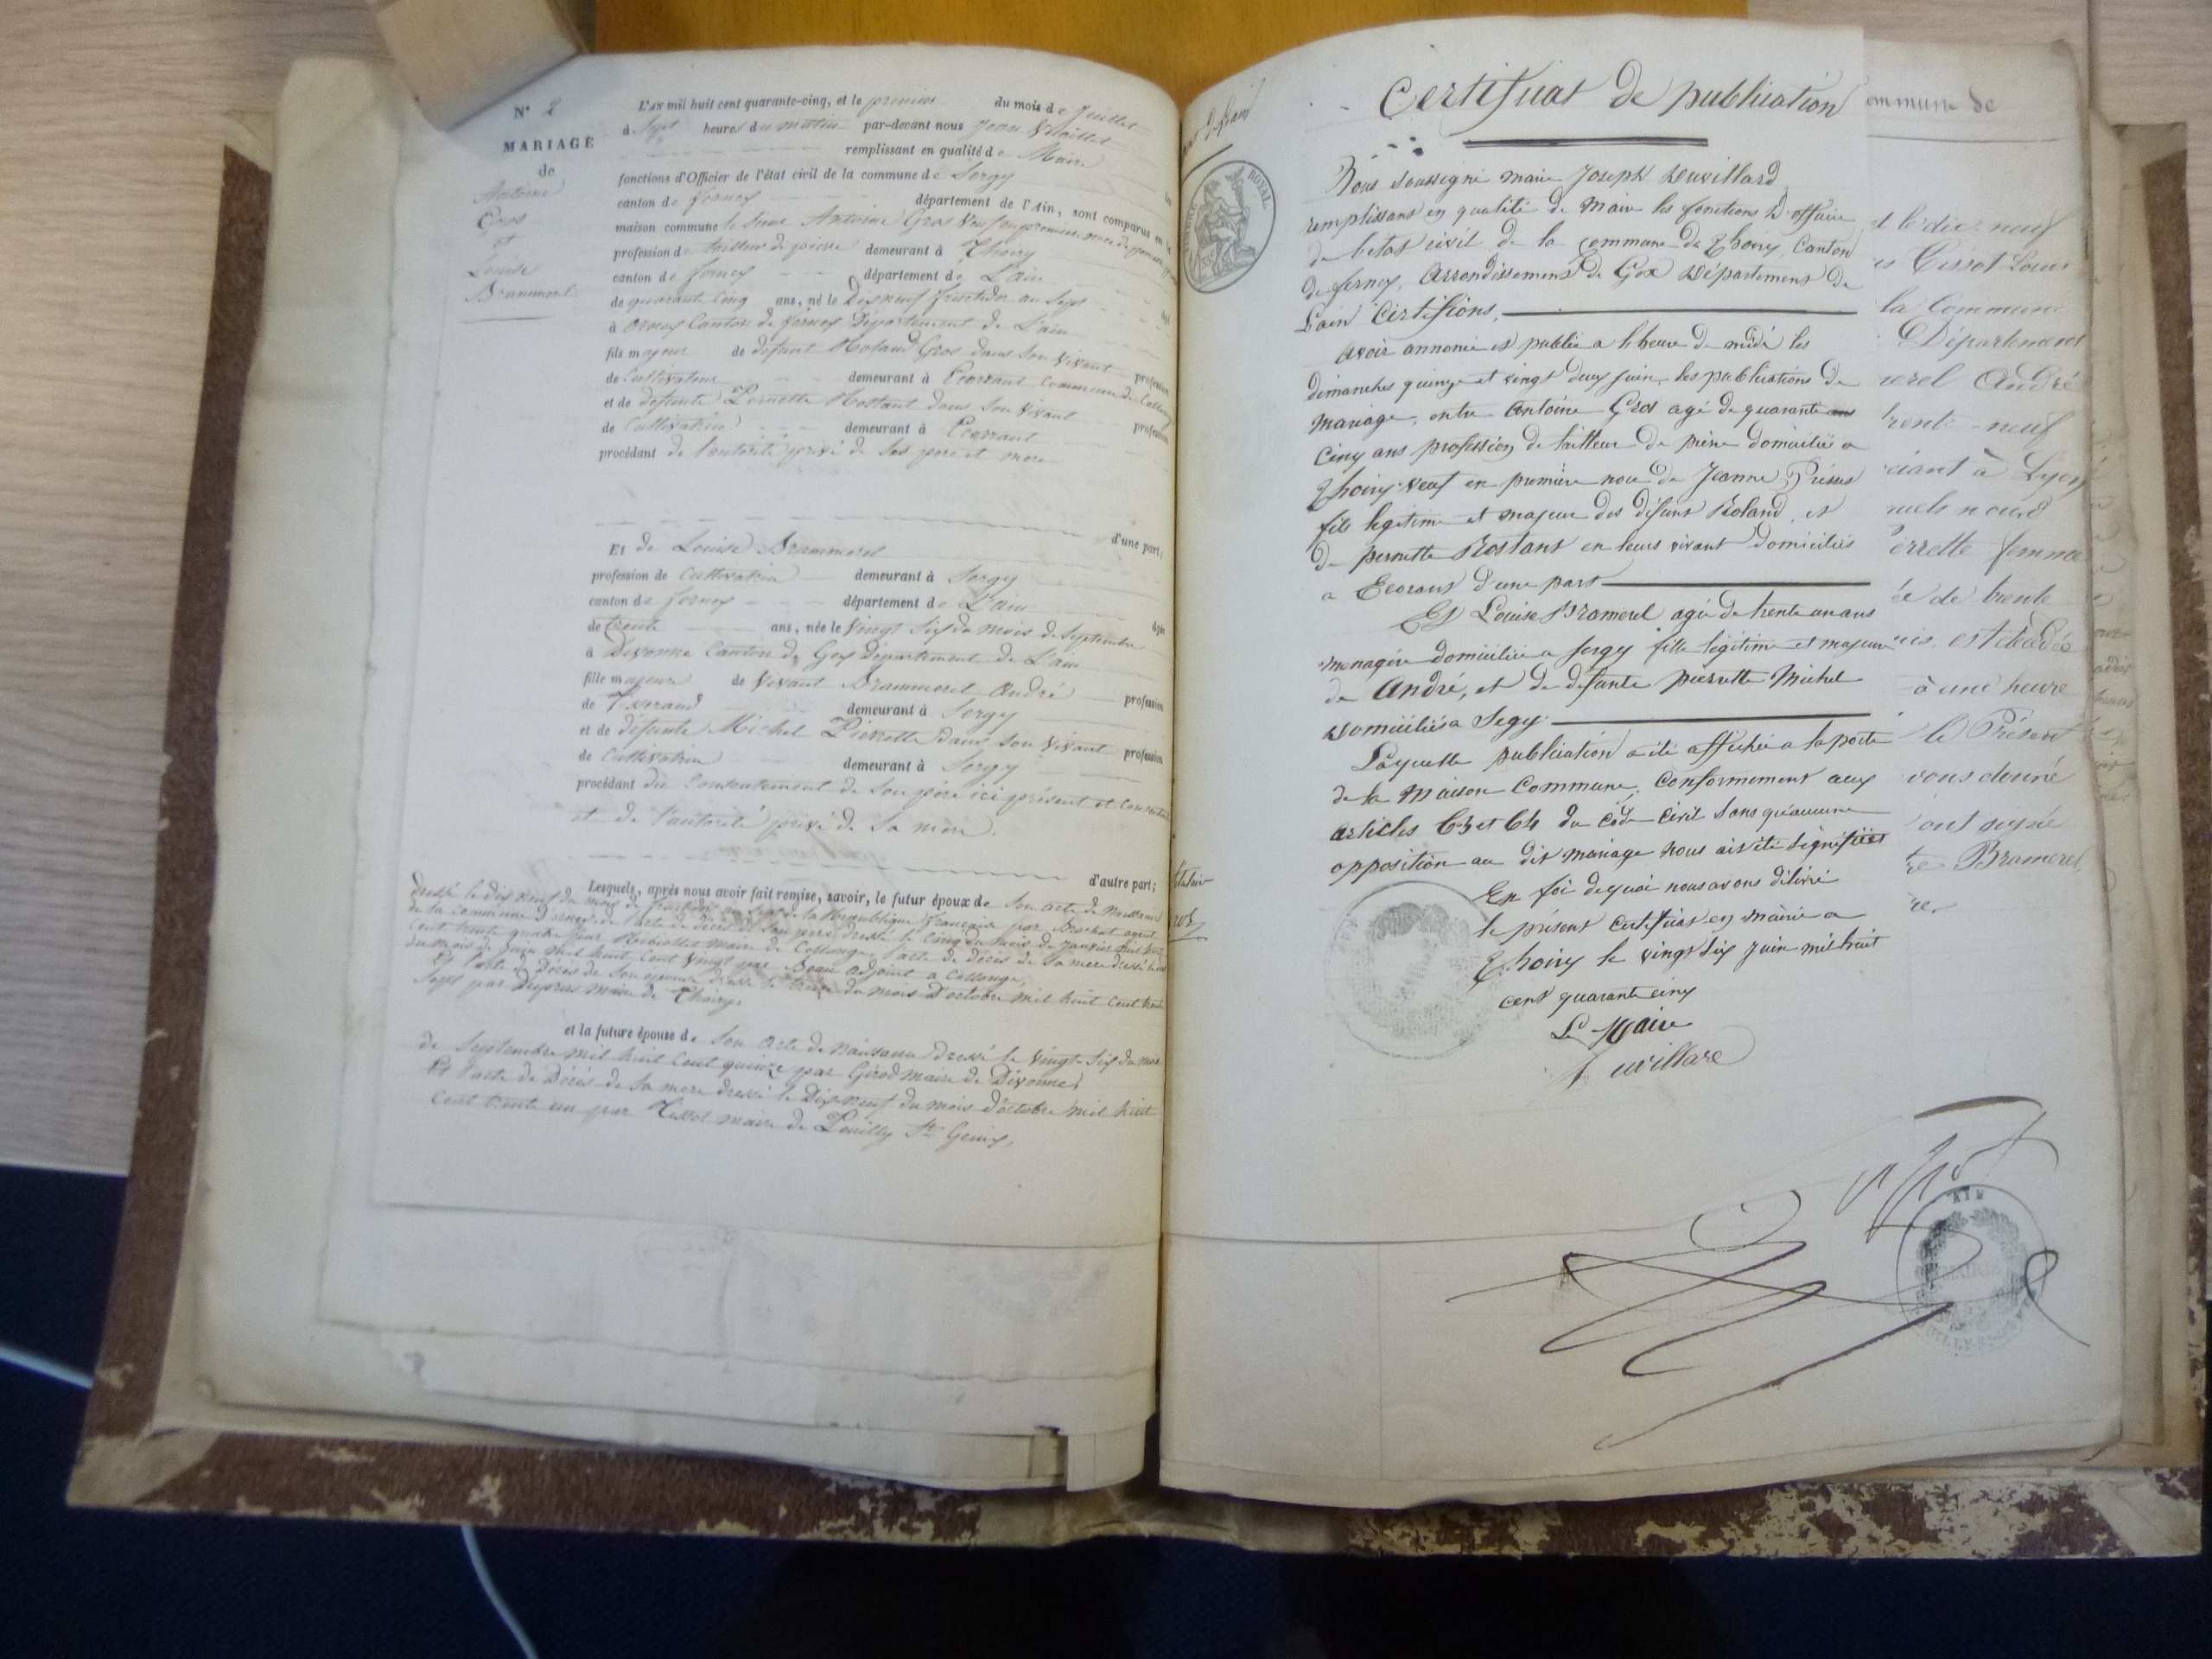 N° 2
MARIAGE
de
Antoine
Gros
et
Louise
Brammerel
L'AN mil huit cent quarante-cinq, et le premier du mois de Juillet
à Sept heures du matin par-devant nous Jean
remplissant en qualité de Maire les
fonctions d'Officier de l'état civil de la commune de Sergy
canton de fernex département de l'Ain, sont comparus en la
maison commune le Sieur Antoine Gros Veuf en premiere noce de
profession de tailleur de pierre demeurant à Thoiry
canton de fernex département de L'ain
de quarante Cinq ans, né le Dix neuf fructidor an Sept
à ornex Canton de fernex Département de L'ain
fils majeur de défunt Roland Gros dans son Vivant profession
de Cultivateur demeurant à Ecorans Commune de Collonge
et de défunte Pernette Rostant dans son Vivant profession
de Cultivatrice demeurant à Ecorans
procédant de l'autorité privé de ses pere et mere
d'une part;
Et de Louise Brammerel
profession de Cultivatrice demeurant à Sergy
canton de fernex département de L'ain âgée
de trente ans, née le Vingt Six du mois de Septembre
à Divonne Canton de Gex Département de L'ain
fille majeure de Vivant Brammerel André profession
de demeurant à Sergy
et de défunte Michel Pierrette dans son Vivant profession
de Cultivatrice demeurant à Sergy
procédant du Consentement de Son père ici présent et Consentant
et de l'autorité privé de Sa mère.
d'autre part;
Lesquels, après nous avoir fait remise, savoir, le futur époux de Son acte de Naissance
dressé le dix neuf du mois de fructidor an Sept de la République française par Brochut agent
de la Commune d'ornex, de l'acte de décès de Son pere dressé le Cinq du mois de Janvier mil huit
Cent trente quatre par maire de Collonge, l'acte de décès de Sa mere dressé le
du mois de Juin mil huit Cent Vingt par Beau adjoint a Collonge,
Et l'acte de Décès de Son épouse dressé le treize du mois D'octobre mil huit Cent trente
Sept par Dupras maire de Thoiry.
et la future épouse de Son acte de Naissance Dressé le Vingt-Six du mois
de Septembre mil huit Cent quinze par Girod maire de Divonne,
Et l'acte de Décès de Sa mere dressé le Dix neuf du mois d'octobre mil huit
Cent trente un par Tissot maire de Pouilly St Genis,
Certificat de publication
Nous soussigné maire Joseph Duvillard
remplissant en qualité de Maire les fonctions d'officier
de letat civil de la commune de Thoiry, Canton
de fernex, Arrondissement de Gex Département de
Lain Certifions,
avoir annoncé et publié a l'heure de midi les
dimanches quinze et vingt deux juin, les publications de
Mariage, entre Antoine Gros agé de quarante
Cinq ans profession de tailleur de pierre domicilié a
Thoiry veuf en première noce de Jeanne
fils légitime et majeur des défunt Roland, et
de pernette Rostant en leurs vivant domiciliés
a Ecorans d'une part
Et Louise Bramerel agée de trente un ans
menagère domiciliée a Sergy fille légitime et majeure
de André, et de défunte pierrette Michel
domiciliés a Segy
Laquelle publication a été affichée a la porte
de la Maison Commune, Conformément aux
articles 63 et 64 du code Civil sans qu'aucune
opposition au dit mariage nous ait été signifiée
En foi de quoi nous avons délivré
le présent certificat en mairie a
Thoiry le vingt six juin mil huit
cent quarante cinq
Le Maire
Duvillard
TIMBRE ROYAL
ommune de
t le dix-neuf
Tissot Louis
la Commune
Département
erel André
trente-neuf
ciant à Lyon
errette femme
de trente
est décédée
à une heure
le Présent
vous donné
ont signé
Bramerel
AIN
MAIRIE